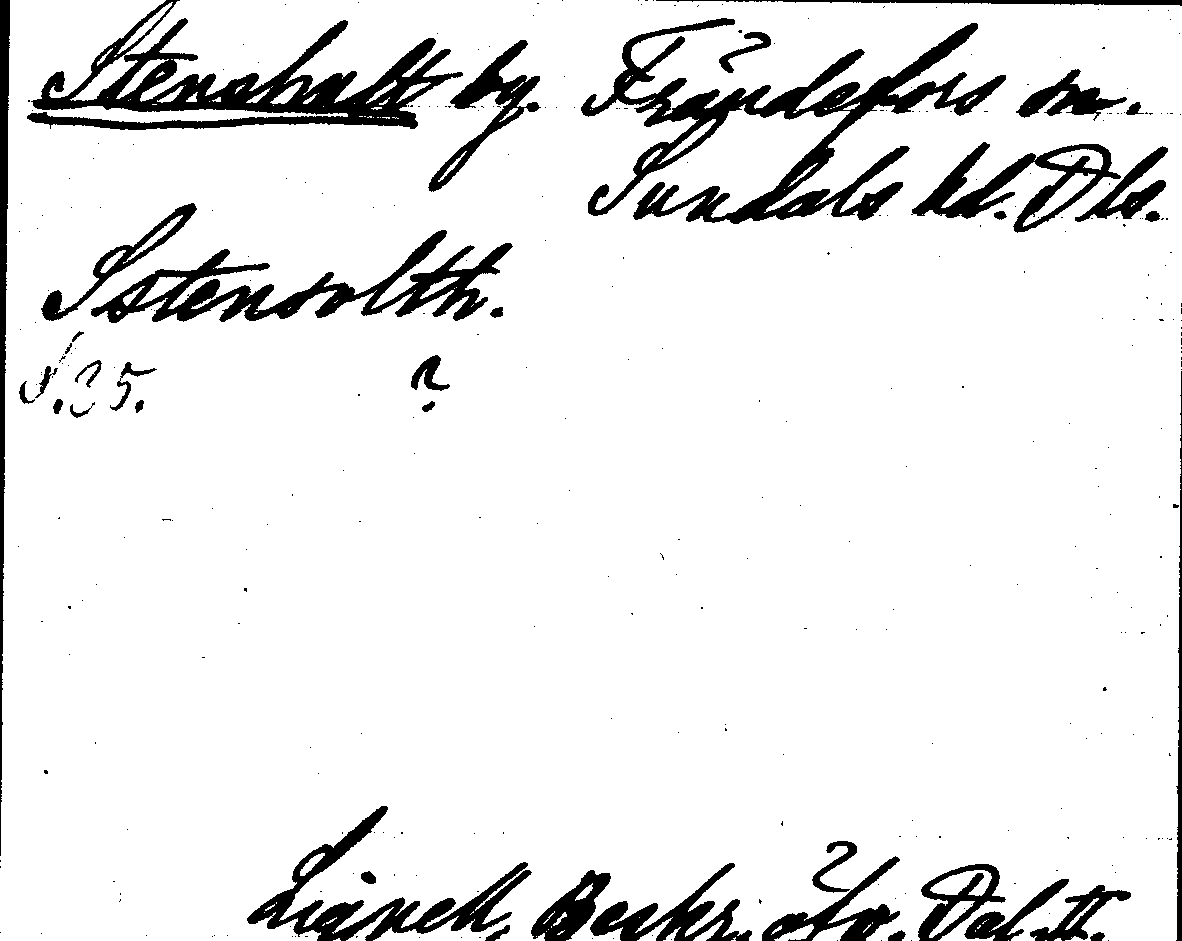 Stenshult by. Frändefors sn.
Sundals hd. Dls.
Sstensolth.
S.35. ?
Lignell, Beskr. öfv. Dal